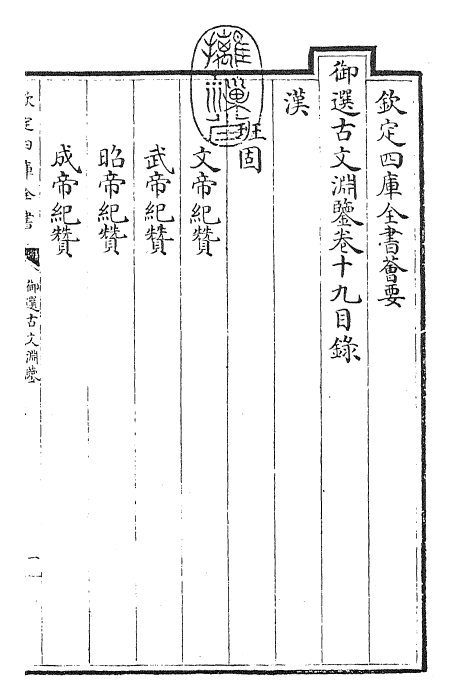 欽定四庫全書薈要
御選古文淵鑒卷十九目錄
漢
班固
文帝紀贊
武帝紀贊
昭帝紀贊
成帝紀贊
欽定四庫全書
御選古文淵鑒
一